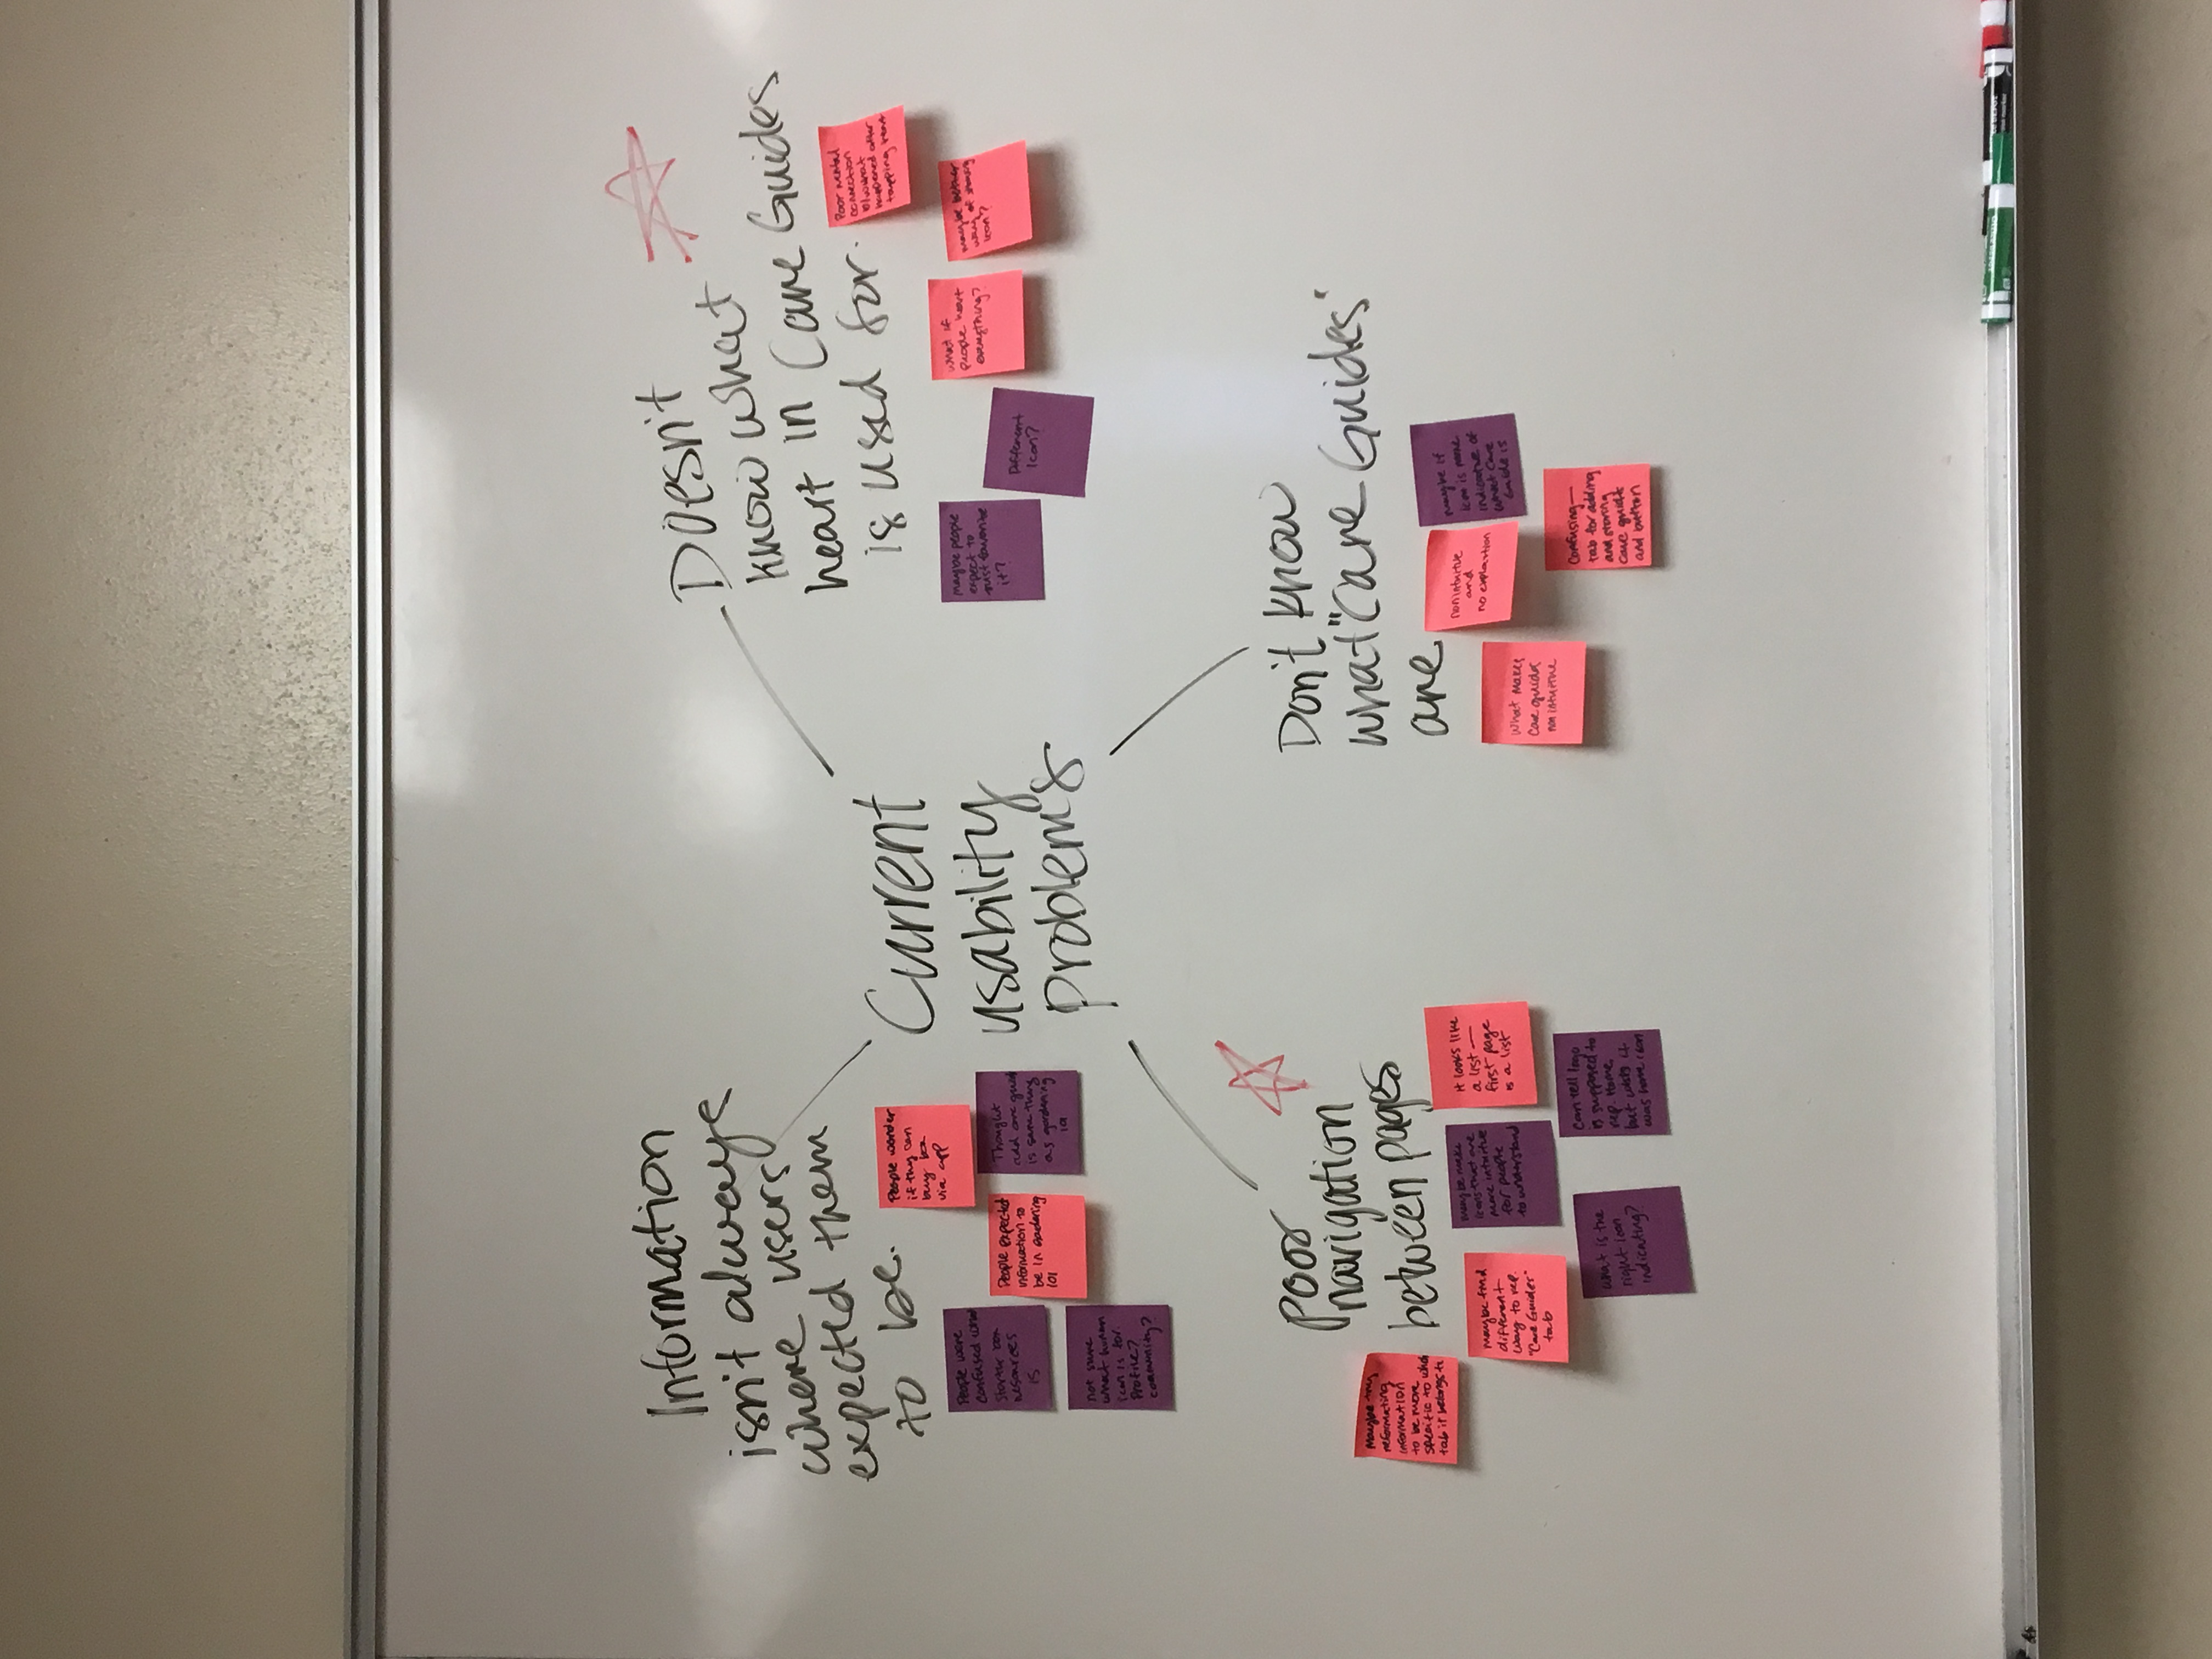 Information
isn't always
where users
expected them
to be.
People wonder
if they can
buy box
via app
People were
confused what
starter box
resources
is
People expected
information to
be in gardening
101
Thought
add care guide
is same thing
as gardening
101
not sure
what human
icon is for.
Profile?
community?
Doesn't
know what
heart in Care Guides
is used for.
Poor mental
connection
b/w what
happened after
tapping heart
maybe people
expect to
just favorite
it?
Different
icon?
what if
people heart
everything?
maybe better
way of showing
icon?
Current
usability
Problems
poor
navigation
between pages
Maybe try
reformating
information
to be more
specific to which
tab it belongs to
maybe find
different
way to rep.
"Care Guides"
tab
maybe make
icons that are
more intuitive
for people
to understand
it looks like
a list —
first page
is a list
what is the
right icon
indicating?
Can tell logo
is supposed to
rep. Home,
but wish it
was home icon
Don't know
what "Care Guides"
are
nonintuitive
and
no explantion
maybe if
icon is more
indicative of
what Care
Guide is
What makes
Care guides
nonintuitive
Confusing —
tab for adding
and storing
care guides
and button